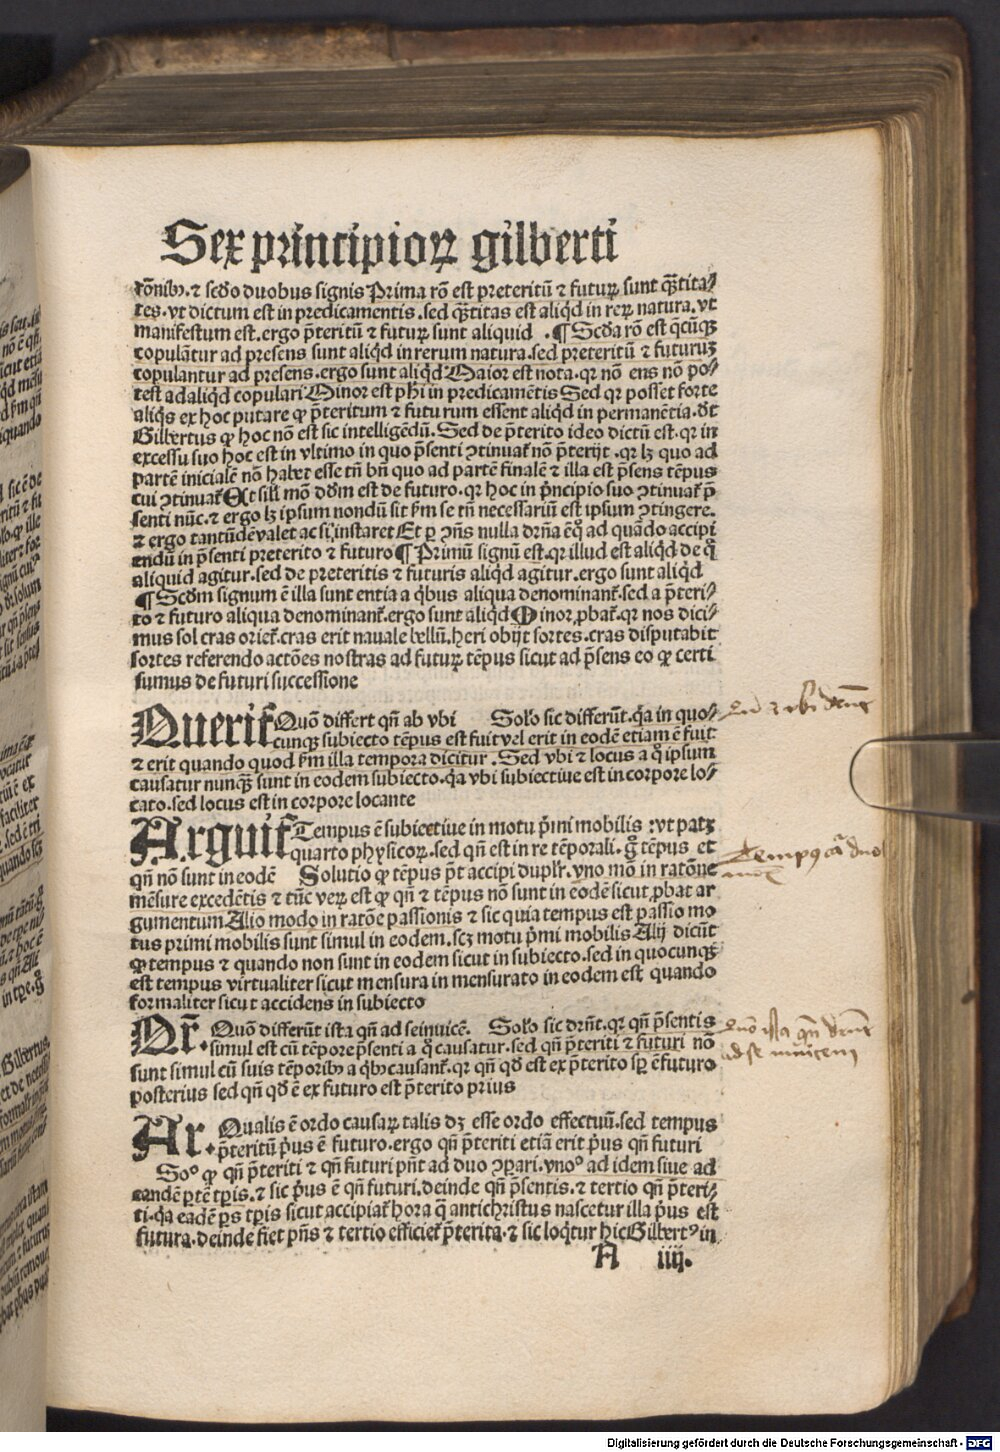 Sex principioꝝ gilberti
rōnibꝰ. ⁊ secd̄o duobus signis Prima rō est preteritū ⁊ futuꝝ sunt quātita⸗
tes. vt dictum est in predicamentis. sed quātitas est aliqd in reꝝ natura. vt
manifestum est. ergo p̄teritū ⁊ futuꝝ sunt aliquid . ¶ Scd̄a rō est q̄cūqꝫ
copulātur ad presens sunt aliqd in rerum natura. sed preteritū ⁊ futuruꝫ
copulantur ad presens. ergo sunt aliqd Maior est nota. qꝛ nō ens nō po⸗
test ad aliqd copulari Minor est phī in predicamētis Sed qꝛ posset forte
aliqs ex hoc putare ꝙ p̄teritum ⁊ futurum essent aliqd in permanētia. dt̄
Gilbertus ꝙ hoc nō est sic intelligēdū. Sed de p̄terito ideo dictū est. qꝛ in
excessu suo hoc est in vltimo in quo p̄senti ꝯtinuat̄ nō p̄terijt . qꝛ lꝫ quo ad
partē inicialē nō habet esse tn̄ bn̄ quo ad partē finalē ⁊ illa est p̄sens tēpus
cui ꝯtinuat̄ Et sil̄i mō dd̄m est de futuro. qꝛ hoc in p̄ncipio suo ꝯtinuat̄ p̄
senti nūc. ⁊ ergo lꝫ ipsum nondū sit fm̄ se tn̄ necessariū est ipsum ꝯtingere.
⁊ ergo tantūdē valet ac si instaret Et ꝑ ꝯn̄s nulla drn̄a ē qͦ ad quādo accipi
endū in p̄senti preterito ⁊ futuro ¶ Primū signū est. qꝛ illud est aliqd de qͦ
aliquid agitur. sed de preteritis ⁊ futuris aliqd agitur. ergo sunt aliqd
¶ Scd̄m signum ē illa sunt entia a qbus aliqua denominant̄. sed a p̄teri⸗
to ⁊ futuro aliqua denominant̄. ergo sunt aliqd Minor ꝓbat̄. qꝛ nos dici⸗
mus sol cras oriet̄. cras erit nauale bellū. heri obijt sortes. cras disputabit
sortes referendo actōes nostras ad futuꝝ tēpus sicut ad p̄sens eo ꝙ certi
sumus de futuri successione
Querit̄ Quō differt qn̄ ab vbi Solo sic differūt. qꝛ in quo⸗
cunqꝫ subiecto tēpus est fuit vel erit in eodē etiam ē fuit
⁊ erit quando quod fm̄ illa tempora dicitur . Sed vbi ⁊ locus a qͦ ipsum
causatur nunqꝫ sunt in eodem subiecto. qꝛ vbi subiectiue est in corpore lo⸗
cato. sed locus est in corpore locante
Arguit̄ Tempus ē subiectiue in motu p̄mi mobilis : vt patꝫ
quarto physicoꝝ. sed qn̄ est in re tēporali. gͦ tēpus et
qn̄ nō sunt in eodē Solutio ꝙ tēpus pt̄ accipi duplr̄. vno mō in ratōne
mēsure excedētis ⁊ tūc veꝝ est ꝙ qn̄ ⁊ tēpus nō sunt in eodē sicut ꝓbat ar
gumentum Alio modo in ratōe passionis ⁊ sic quia tempus est passio mo
tus primi mobilis sunt simul in eodem. scꝫ motu p̄mi mobilis Alij dicūt
ꝙ tempus ⁊ quando non sunt in eodem sicut in subiecto. sed in quocunqꝫ
est tempus virtualiter sicut mensura in mensurato in eodem est quando
formaliter sicut accidens in subiecto
Qr̄. Quō differūt ista qn̄ ad seinuicē. Solo sic drn̄t. qꝛ qn̄ p̄sentis
simul est cū tēpore p̄senti a qͦ causatur. sed qn̄ p̄teriti ⁊ futuri nō
sunt simul cū suis tēporibꝰ a qbꝰ causant̄. qꝛ qn̄ qd̄ est ex p̄terito sp̄ ē futuro
posterius sed qn̄ qd̄ ē ex futuro est p̄terito prius
Ar. Qualis ē ordo causaꝝ talis dꝫ esse ordo effectuū. sed tempus
p̄teritū p̄us ē futuro. ergo qn̄ p̄teriti etiā erit p̄us qn̄ futuri
Soꝰ ꝙ qn̄ p̄teriti ⁊ qn̄ futuri pn̄t ad duo ꝯparari. vnoͦ ad idem siue ad
eandē ꝑtē tꝑis. ⁊ sic p̄us ē qn̄ futuri. deinde qn̄ p̄sentis. ⁊ tertio qn̄ p̄teri⸗
ti. qꝛ eadē ꝑs tꝑis sicut accipiat̄ hora q̄ antichristus nascetur illa p̄us est
futura. deinde fiet pn̄s ⁊ tertio efficiet̄ p̄terita. ⁊ sic loqtur hic Gilbertꝰ in
A iiij.
Tempꝰ
Quō ista qn̄
ad se inuicem
Digitalisierung gefördert durch die Deutsche Forschungsgemeinschaft - DFG